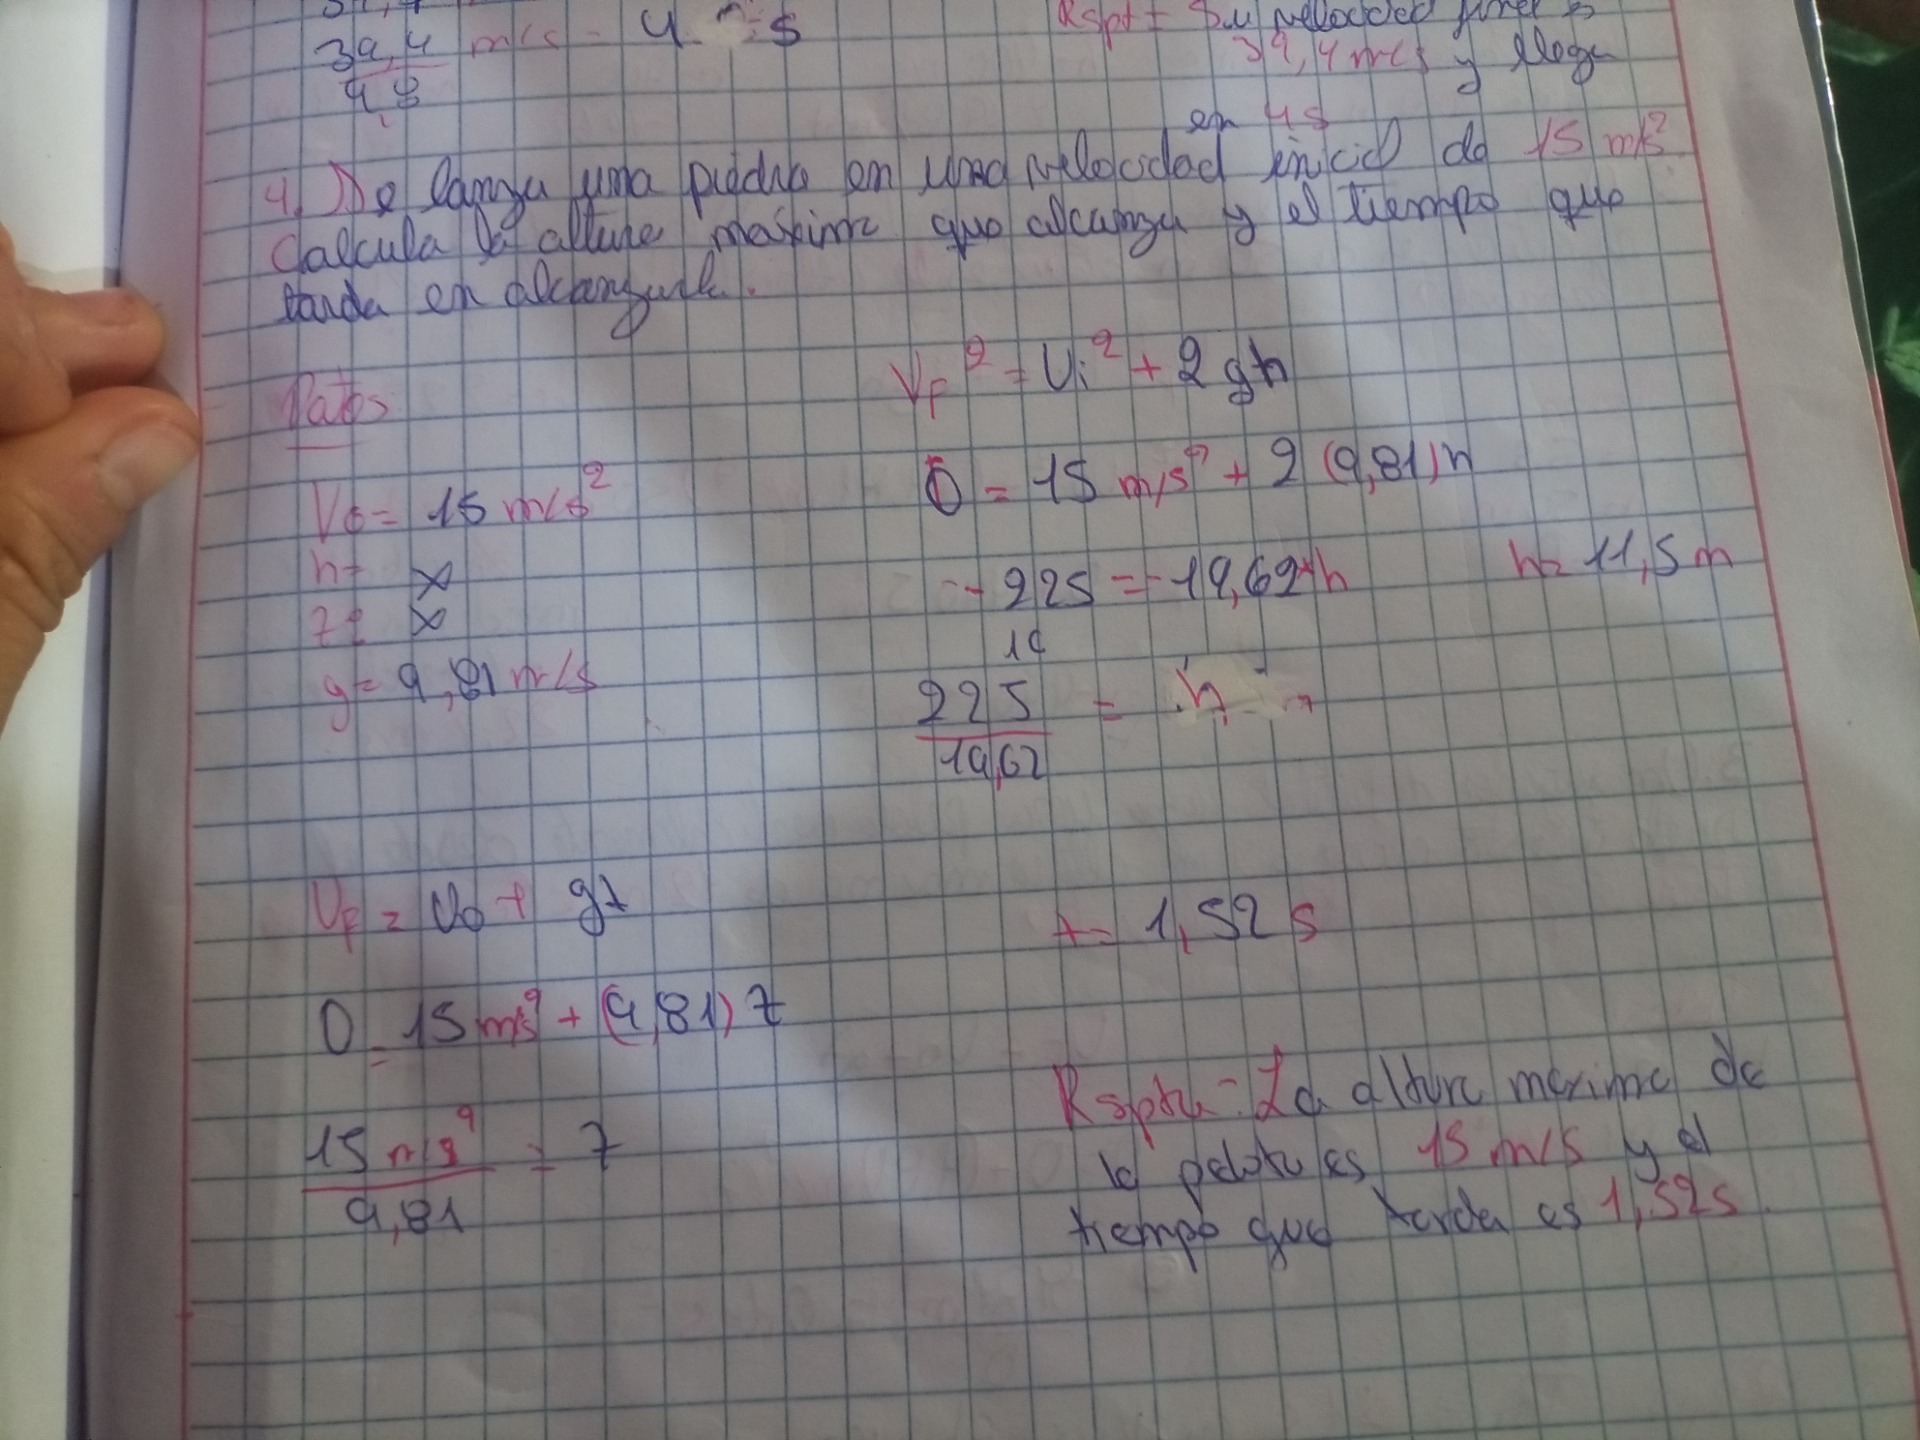 39,4 m/s = 4 s
9,8
Rspt = Su velocidad final es
39,4 m/s y llega
en 4s
4. Se lanza una piedra en una velocidad inicial de 15 m/s²
Calcula la altura maxima que alcanza y el tiempo que
tarda en alcanzarla.
Datos
Vo = 15 m/s²
h = x
t = x
g = 9,81 m/s
Vf² = Vi² + 2 gh
0 = 15 m/s² + 2 (9,81) h
- 225 = - 19,62 * h
h = 11,5 m
225 = h
19,62
Vf = Vo + gt
t = 1,52 s
0 = 15 m/s² + (9,81) t
15 m/s² = t
9,81
Rspta = La altura maxima de
la pelota es 15 m/s y el
tiempo que tarda es 1,52s.